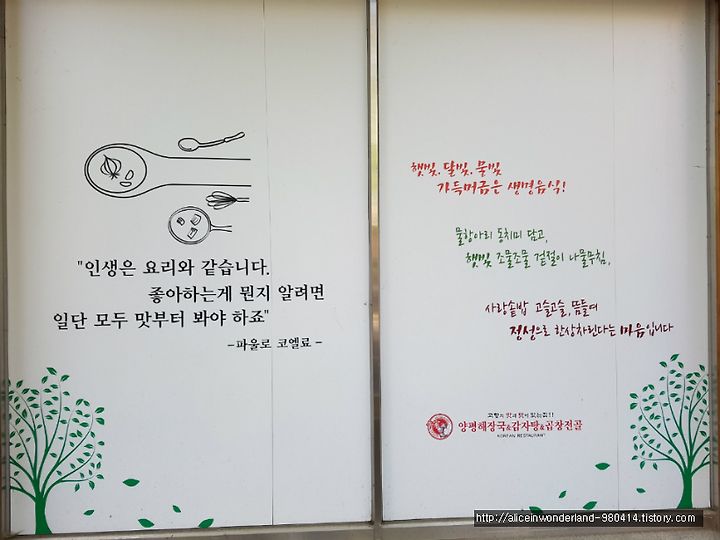 "인생은 요리와 같습니다.
좋아하는게 뭔지 알려면
일단 모두 맛부터 봐야 하죠"
-파울로 코엘료-
햇빛. 달빛. 물빛
가득머금은 생명음식!
물항아리 동치미 담고,
햇빛 조물조물 겉절이 나물무침,
사랑솥밥 고슬고슬, 뜸들여
정성으로 한상차린다는 마음입니다
고향의 맛과 멋이 있는집!!
양평해장국&감자탕&곱창전골
KOREAN RESTAURANT
http://aliceinwonderland-980414.tistory.com